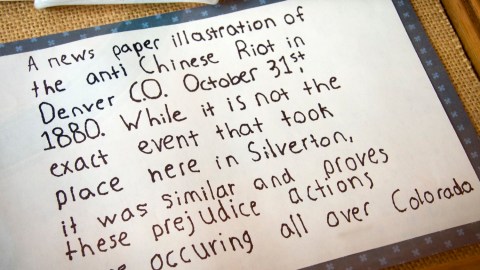 A news paper illastration of
the anti Chinese Riot in
Denver C.O. October 31st,
1880. While it is not the
exact event that took
place here in Silverton,
it was similar and proves
these prejudice actions
occuring all over Colorada